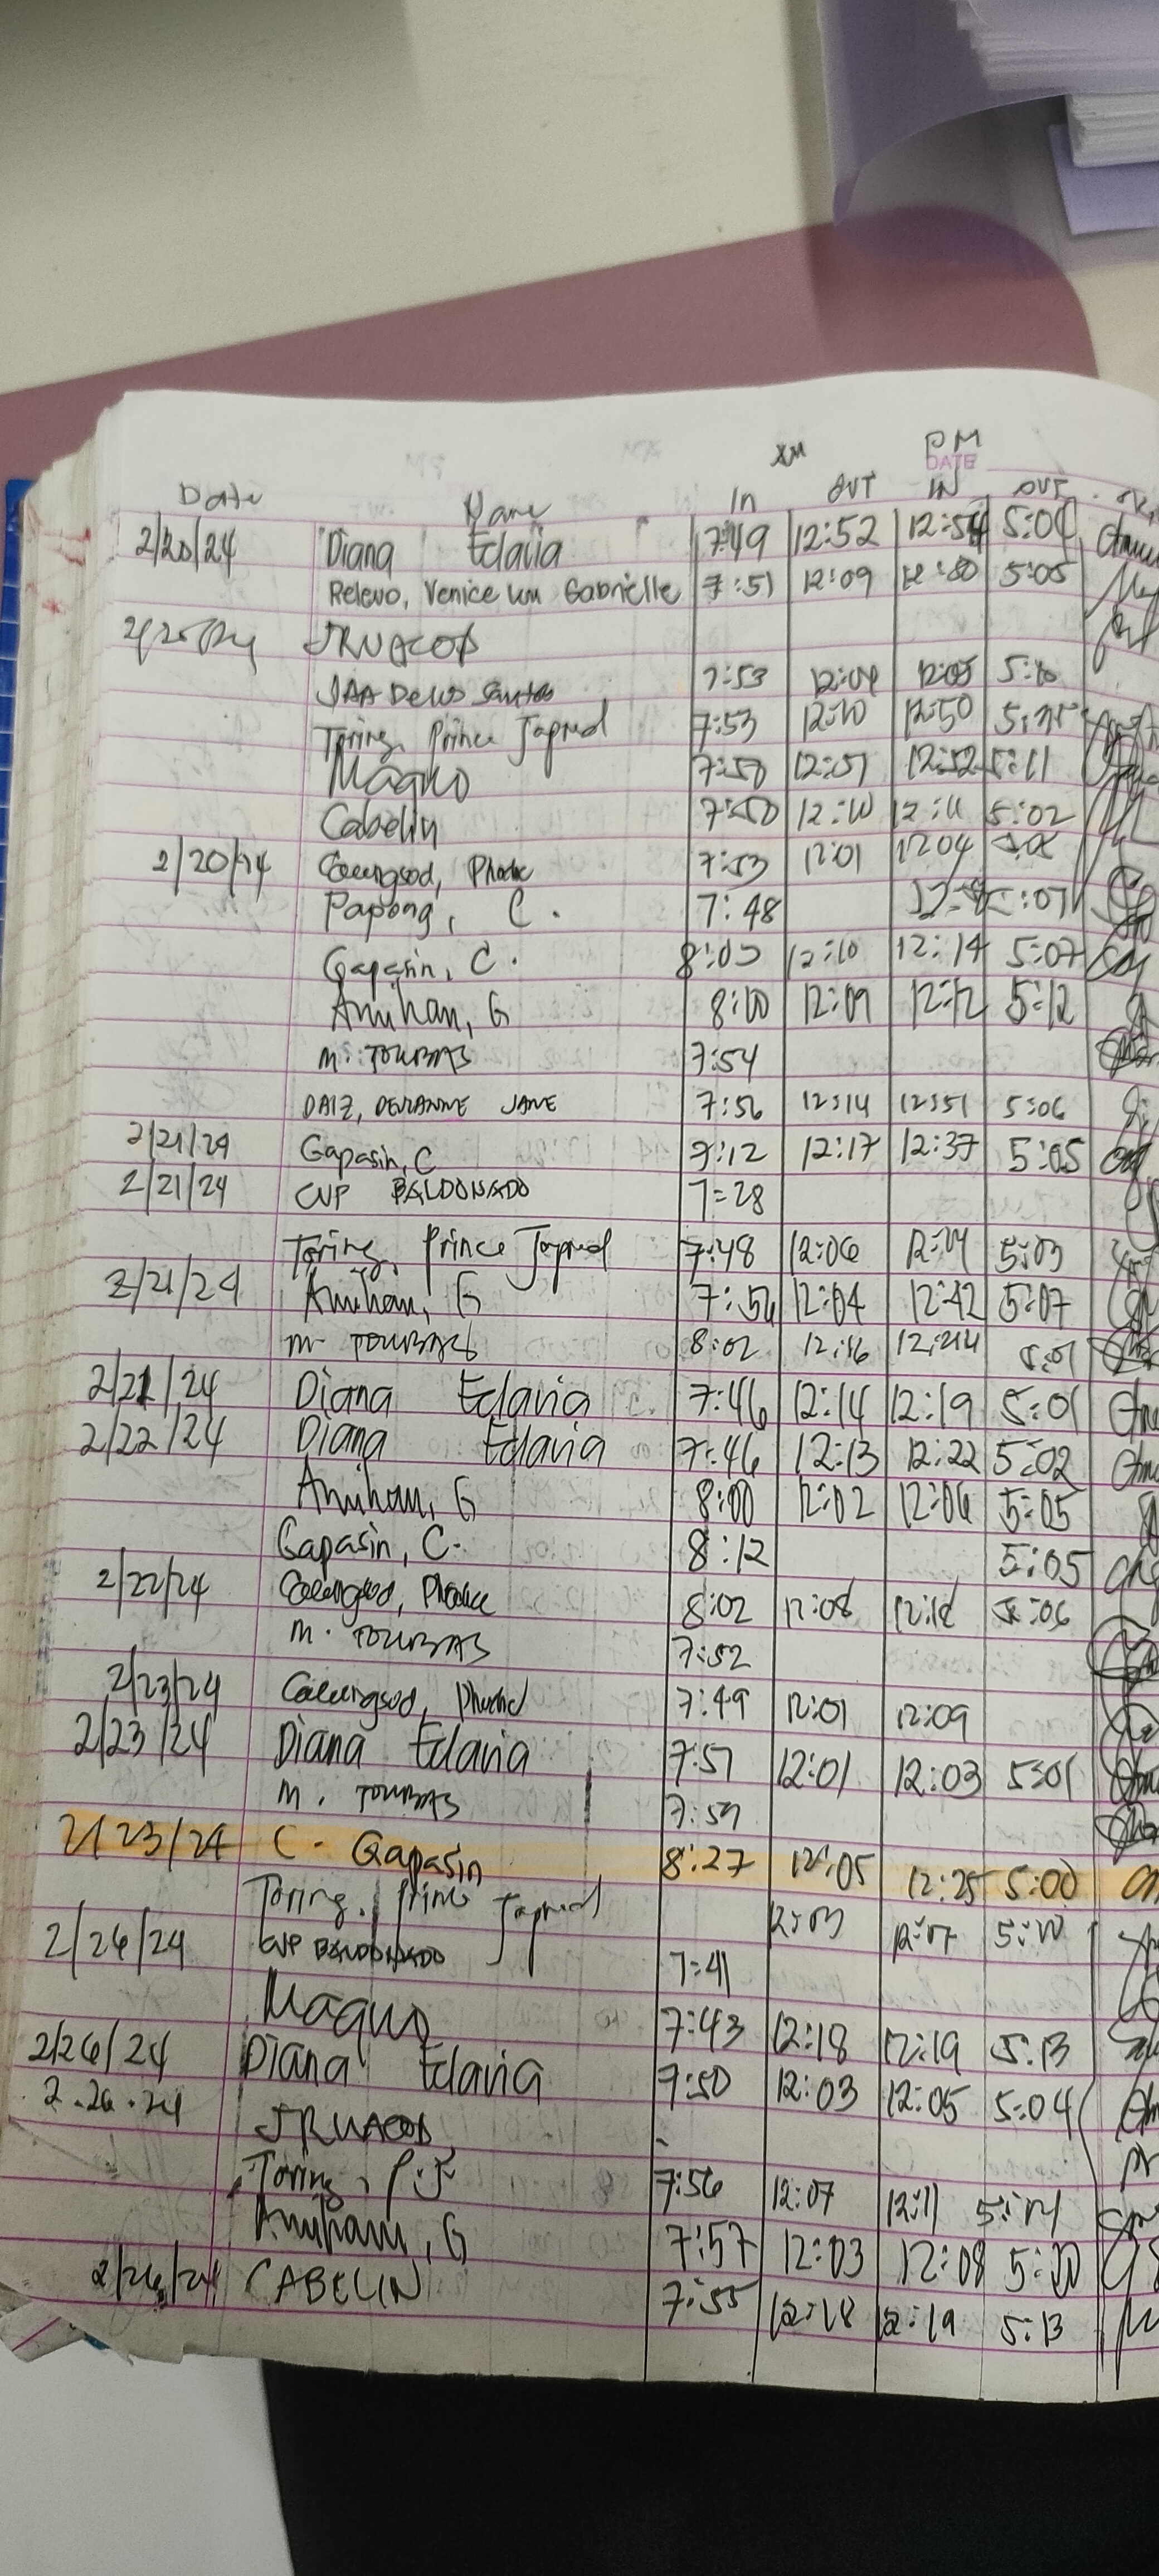 AM PM
DATE
Date Name In OUT IN OUT
2/20/24 Diana Eclavia 7:49 12:52 12:54 5:04
Relevo, Venice Gabrielle 7:51 12:09 5:05
JRUACOB
JAA Delos Santos 7:53 12:04 12:05
Toring, Prince Japred 7:53 12:10 12:50
Maquo 7:58 12:51 12:52 5:11
Cabelin 12:10 12:11 5:02
2/20/24 7:53 12:01 12:04
Papong, C. 7:48
Gapasin, C. 12:10 12:14 5:07
Anihan, G 8:00 12:09 12:12 5:12
M. TOURBAS 7:54
DAIZ, JANE 7:56 12:14 12:51 5:06
2/21/24 Gapasin, C 12:17 12:37 5:05
2/21/24 CVP BALDONADO 7:28
Toring, Prince Japred 7:48 12:06 5:03
2/21/24 Anihan, G 7:56 12:04 12:42 5:07
M TOURBAS 8:02
2/21/24 Diana Eclavia 7:46 12:14 12:19 5:01
2/22/24 Diana Eclavia 7:46 12:13 12:22 5:02
Anihan, G 8:00 12:02 12:06 5:05
Gapasin, C. 8:12 5:05
2/22/24 8:02 12:08 12:12 5:06
M. TOURBAS 7:52
2/23/24 7:49 12:01 12:09
2/23/24 Diana Eclavia 7:57 12:01 12:03 5:01
M. TOURBAS 7:59
2/23/24 C. Gapasin 8:27 12:05 12:25 5:00
Toring, Prince Japred 12:03 12:07 5:10
2/26/24 CVP BALDONADO 7:41
Maquo 7:43 12:18 12:19 5:13
2/26/24 Diana Eclavia 7:50 12:03 12:05 5:04
2.26.24 JRUACOB
Toring, P.J 7:56 12:07 12:11
Anihan, G 7:57 12:03 12:08 5:10
2/26/24 CABELIN 7:55 12:18 12:19 5:13